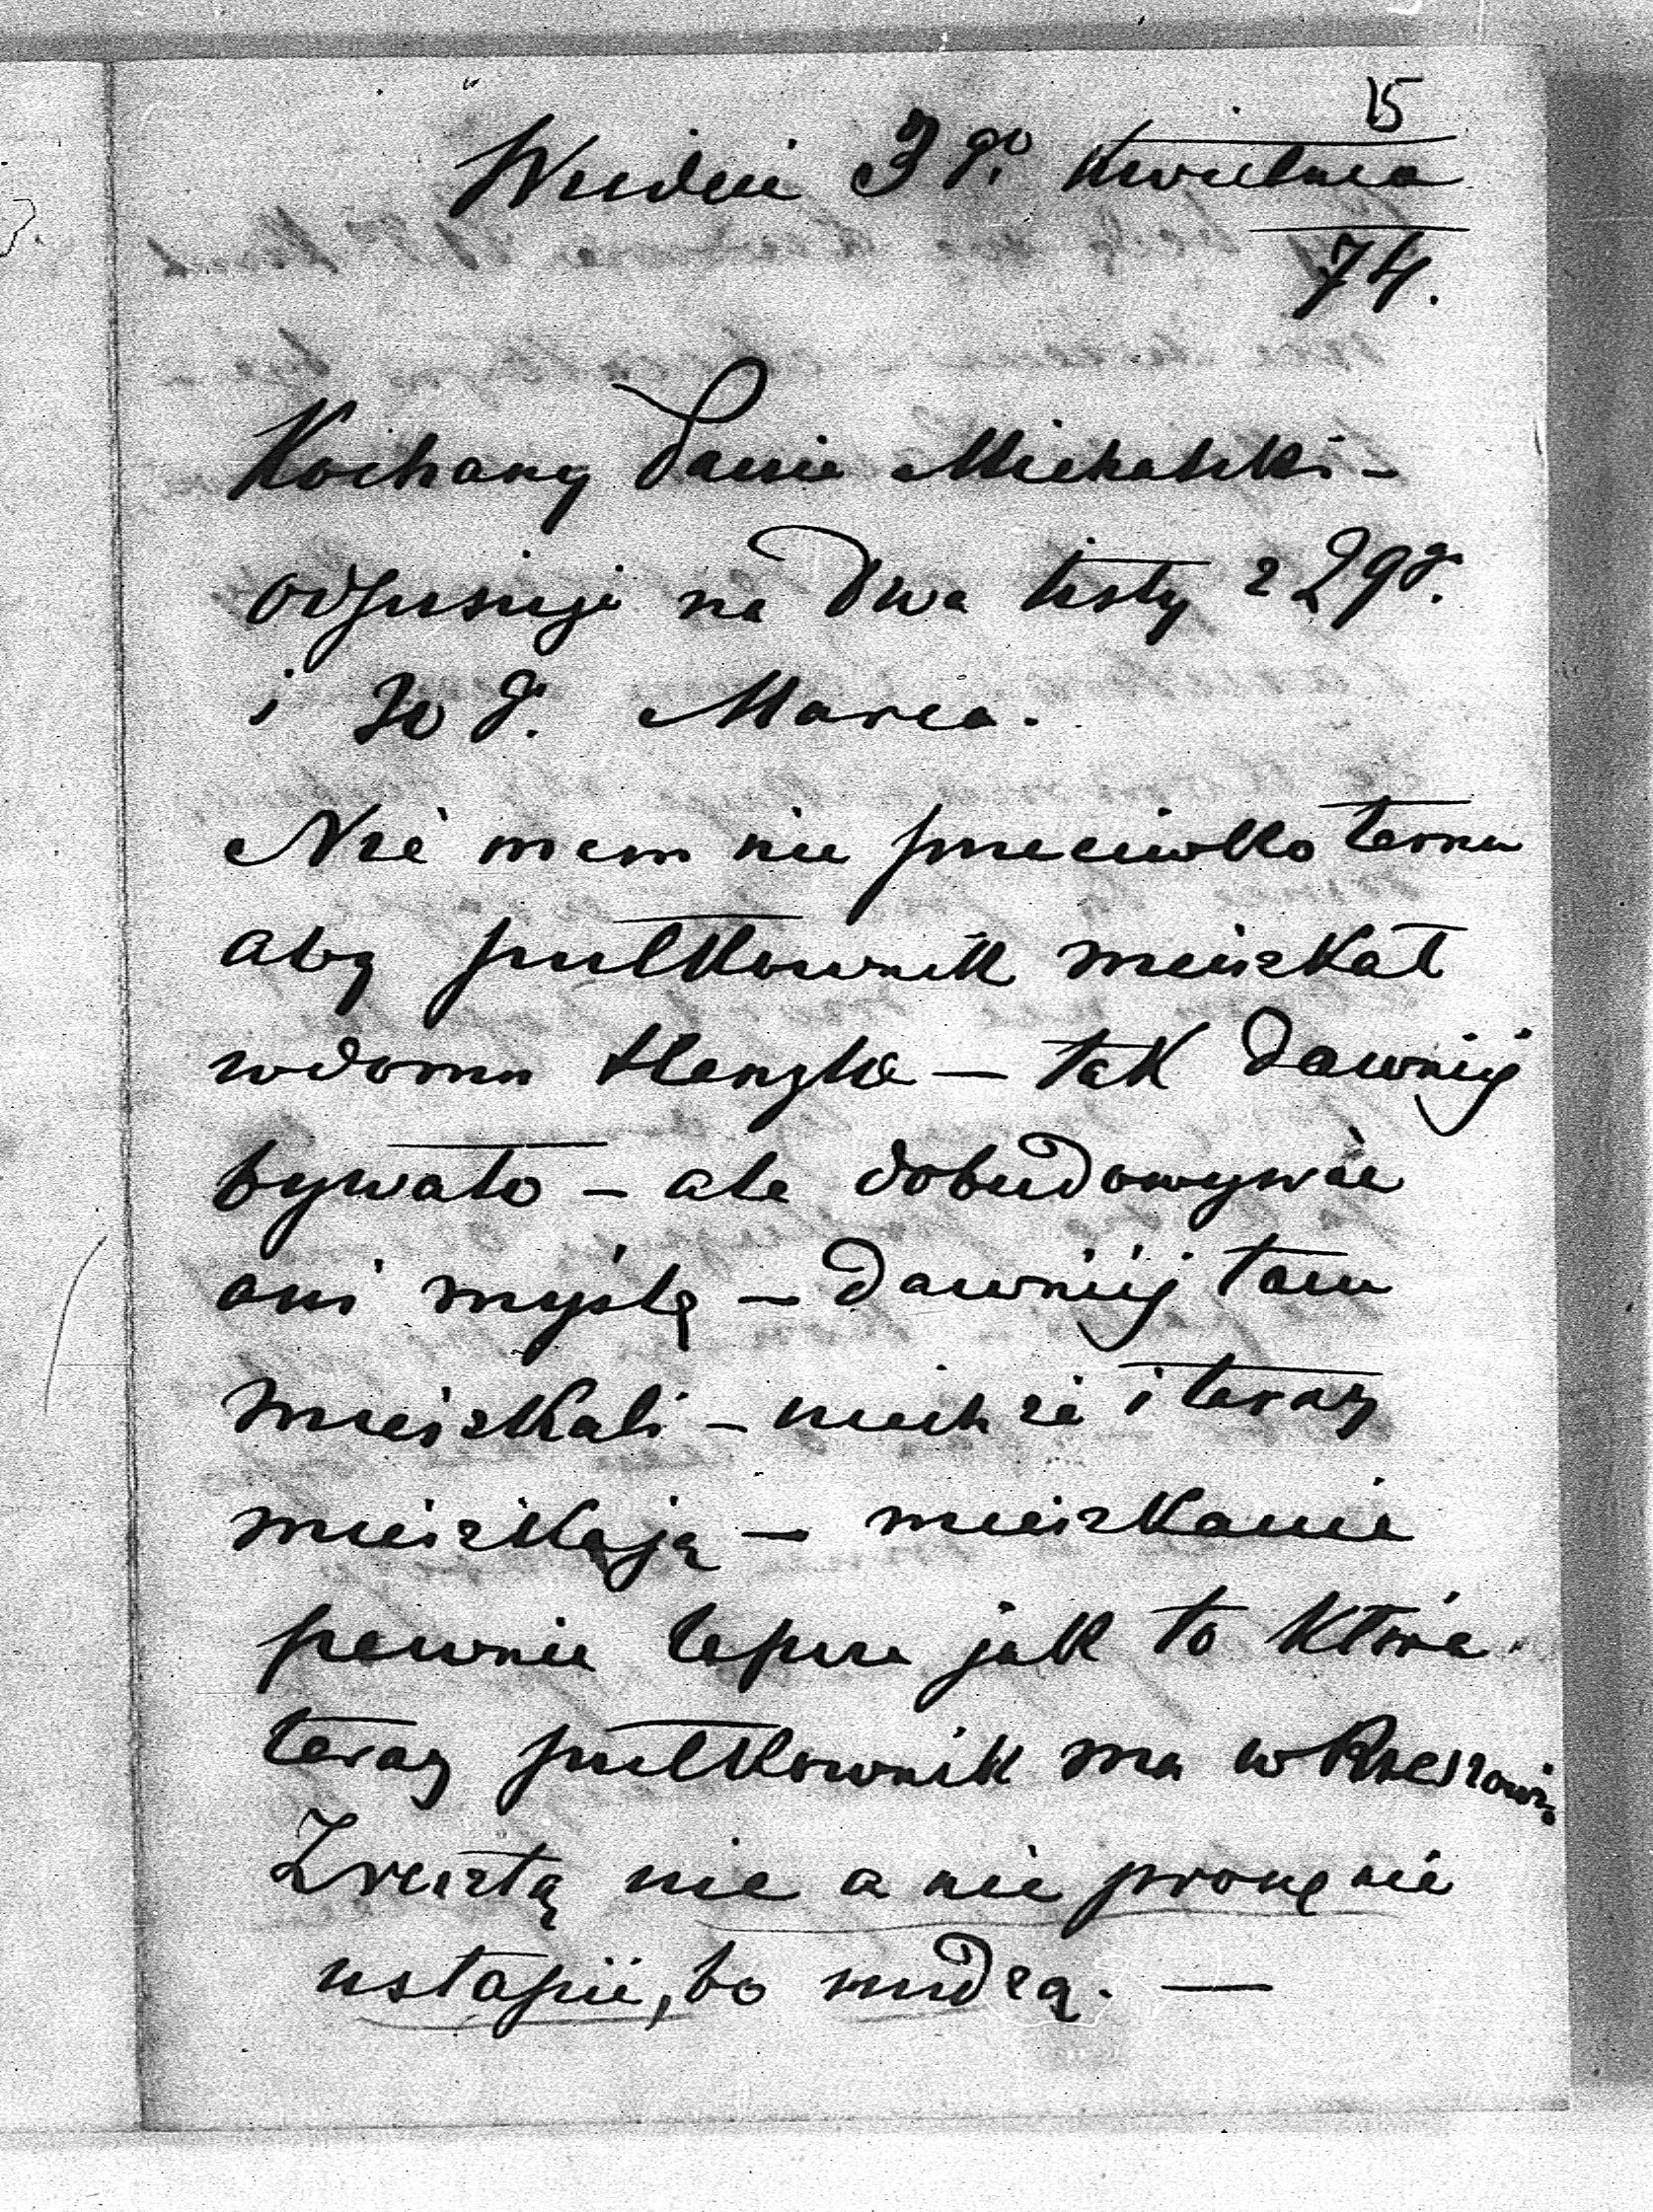 15
Wiedeń 3go Kwietnia
74.
Kochany Panie Michalski –
odpisuję na dwa listy z 29g.
i 30g. Marca.
Nie mam nic przeciwko temu
aby pułkownik mieszkał
w domu – tak dawniej
bywało – ale dobudowywać
ani myślę – dawniej tam
mieszkali – niech że i teraz
mieszkają – mieszkanie
pewnie lepsze jak to które
teraz pułkownik ma w Rzeszowie.
Zresztą nic a nic proszę nie
ustąpić, bo nudzą. —